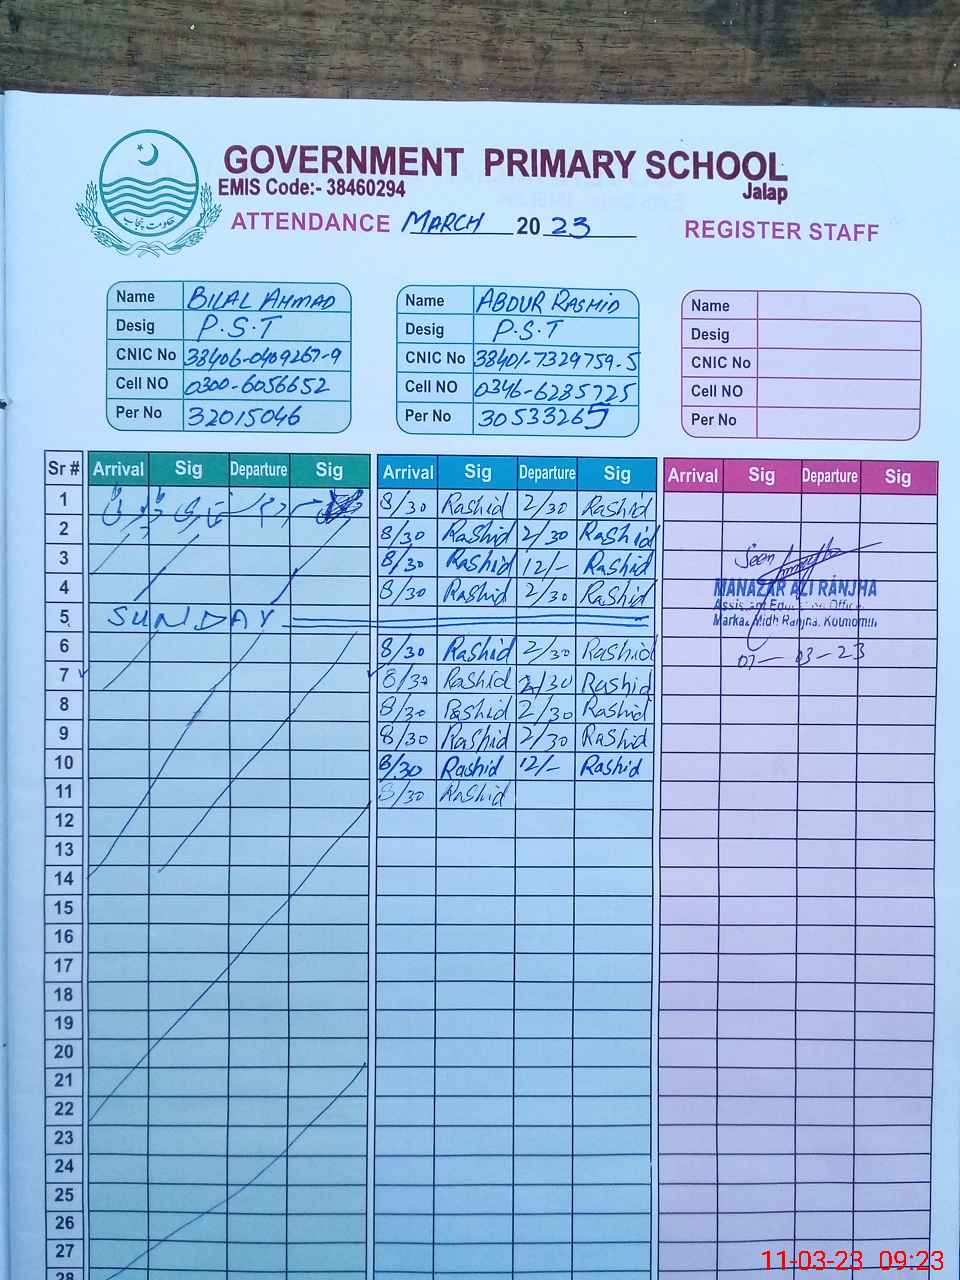 GOVERNMENT PRIMARY SCHOOL
EMIS Code:- 38460294 Jalap
حکومت پنجاب
ATTENDANCE MARCH 2023 REGISTER STAFF
Name BILAL AHMAD Name ABDUR RASHID Name
Desig P.S.T Desig P.S.T Desig
CNIC No 38406-0409267-9 CNIC No 38401-7329759-5 CNIC No
Cell NO 0300-6056652 Cell NO 0346-6285725 Cell NO
Per No 32015046 Per No 30533265 Per No
Sr # Arrival Sig Departure Sig Arrival Sig Departure Sig Arrival Sig Departure Sig
1 8/30 Rashid 2/30 Rashid
2 8/30 Rashid 2/30 Rashid
3 8/30 Rashid 12/- Rashid Seen
4 8/30 Rashid 2/30 Rashid MANAZAR ALI RANJHA
5 SUNDAY Assistant Education Officer
Markaz Midh Ranjha, Kotmomin
6 8/30 Rashid 2/30 Rashid 07-03-23
7 8/30 Rashid 2/30 Rashid
8 8/30 Rashid 2/30 Rashid
9 8/30 Rashid 2/30 Rashid
10 8/30 Rashid 12/- Rashid
11 8/30 Rashid
12
13
14
15
16
17
18
19
20
21
22
23
24
25
26
27
28
11-03-23 09:23